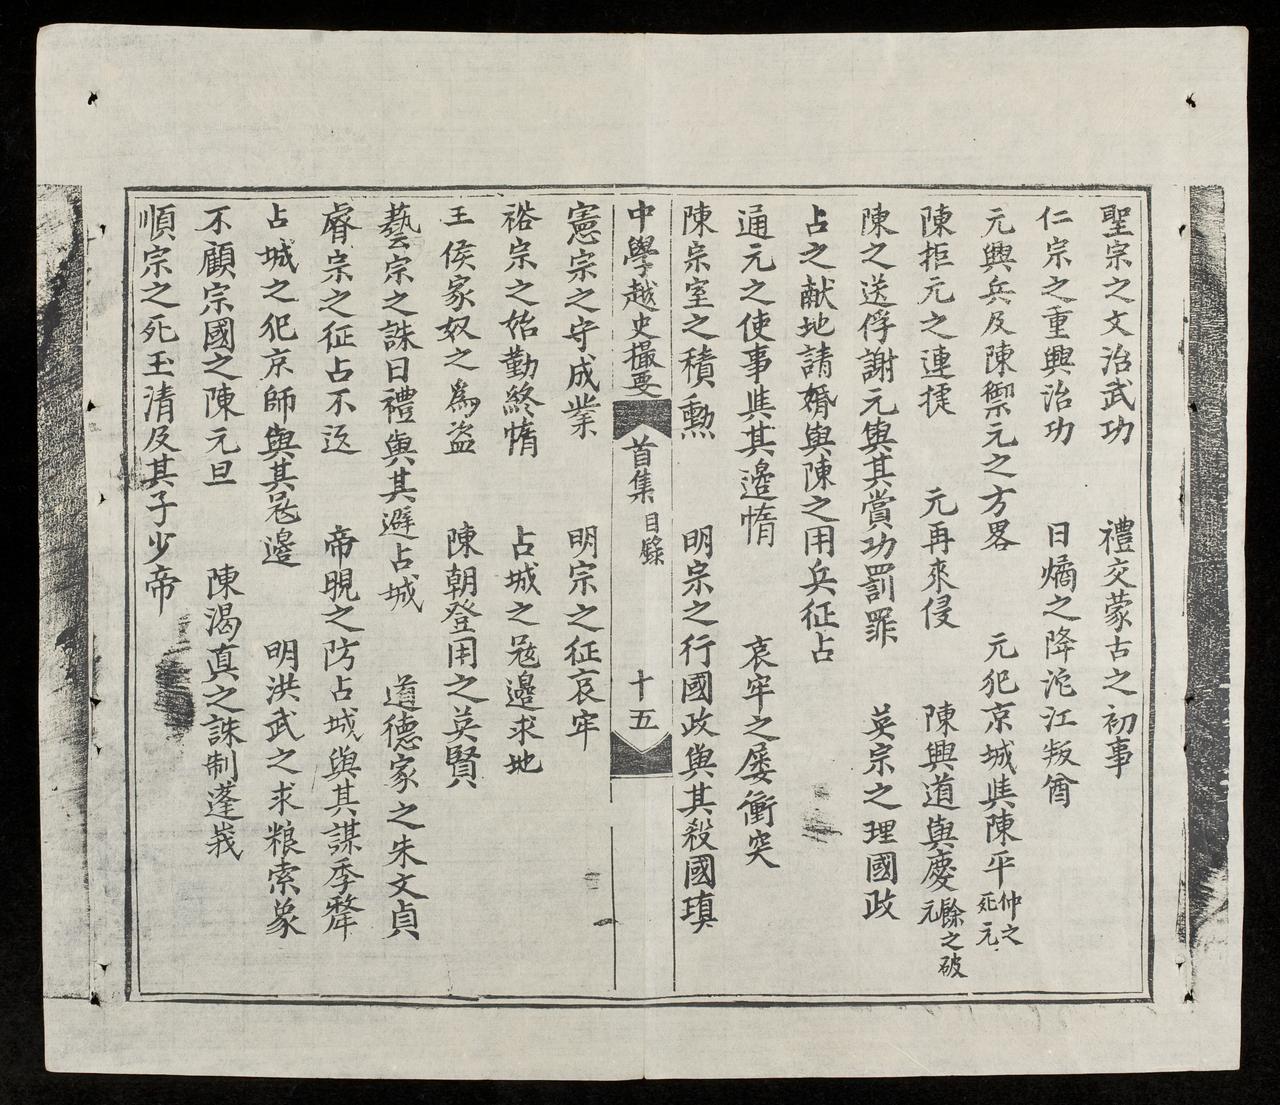 聖宗之文治武功　禮交蒙古之初事
仁宗之重興治功　日燏之降沱江叛酋
元興兵及陳禦元之方畧　元犯京城與陳平仲之死元
陳拒元之連捷　元再來侵　陳興道與慶餘之破元
陳之送俘謝元與其賞功罰罪　英宗之理國政
占之献地請婚與陳之用兵征占
通元之使事與其邊惰　哀牢之屡衝突
陳宗室之積勲　明宗之行國政與其殺國瑱
中學越史撮要　首集　目錄　十五
憲宗之守成業　明宗之征哀牢
裕宗之始勤終惰　占城之㓂邊求地
王侯家奴之為盗　陳朝登用之英賢
藝宗之誅日禮與其避占城　道德家之朱文貞
睿宗之征占不返　帝晛之防占城與其謀季犛
占城之犯京師與其㓂邊　明洪武之求粮索象
不顧宗國之陳元旦　陳渴真之誅制蓬峩
順宗之死玉清及其子少帝